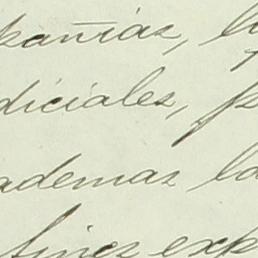 pañias, l
diciales, p
ademas la
fines exp